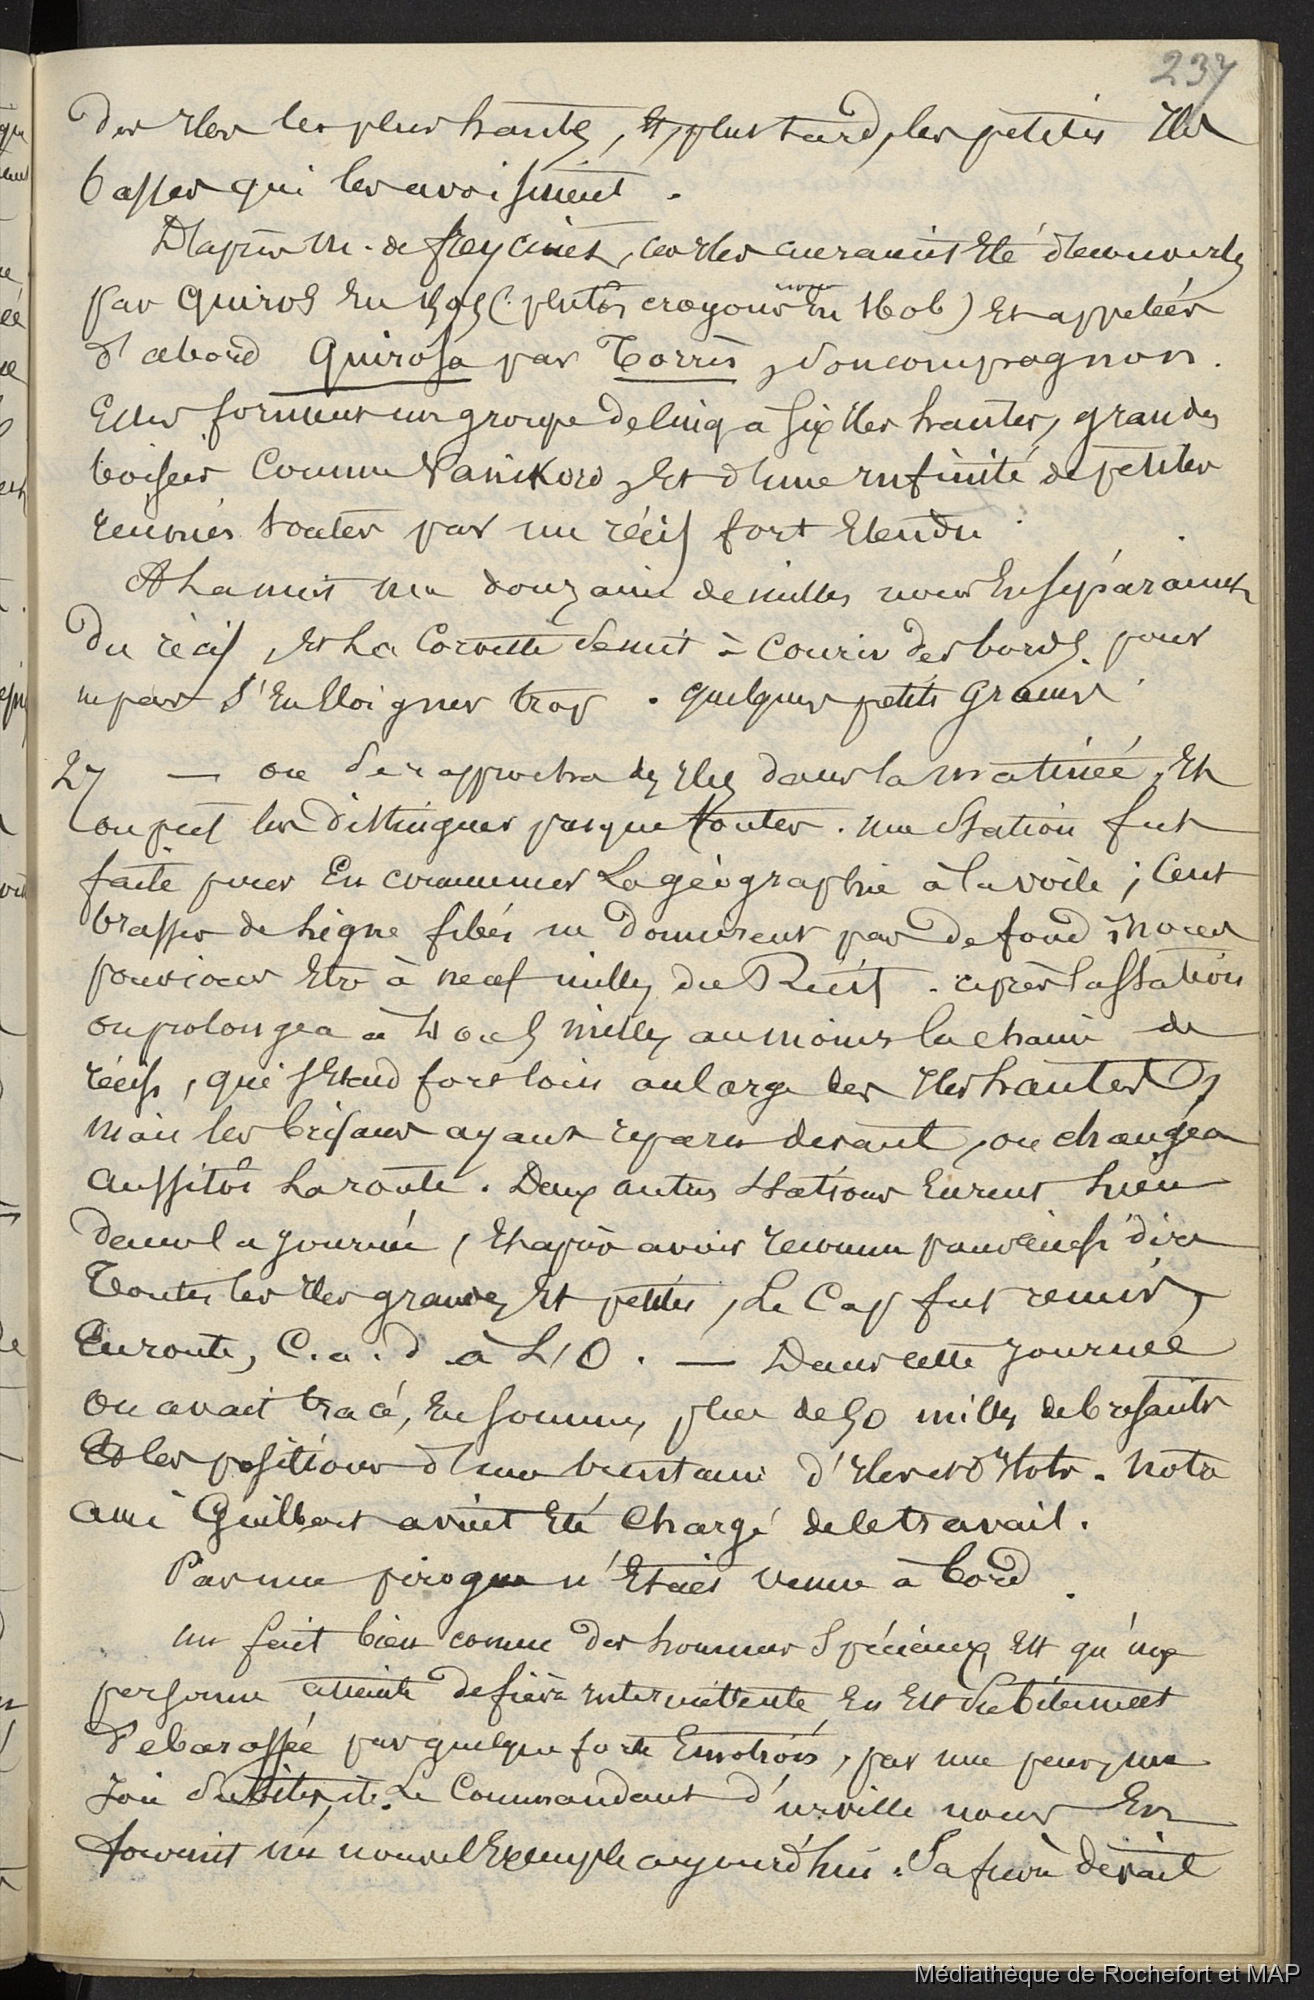 237
des Iles les plus hautes, et, plus tard, les petites Iles
basses qui les avoisinent.
D'après M. de freycinet, ces Iles auraient été découvertes
par Quiros en 1595 (plutôt croyons nous en 1606) et appelées
d'abord Quirosa par Torrès, son compagnon.
Elles forment un groupe de cinq à six Iles hautes, grandes
boisées comme Vanikoro, et d'une infinité de petites
réunies toutes par un récif fort étendu.
A la nuit une douzaine de milles nous en séparaient
du récif, et la Corvette se mit à courir des bords, pour
ne pas s'en éloigner trop. quelques petits grains.
27 — on se rapprocha des Iles dans la matinée, et
on put les distinguer presque toutes. une station fut
faite pour en commencer la géographie à la voile; Cent
brasses de ligne filées ne donnèrent pas de fond; nous
pouvions être à neuf milles du Récif. après la station
on prolongea à 4 ou 5 milles au moins la chaine de
récifs, qui s'étend fort loin au large des Iles hautes,
mais les brisans ayant reparu devant, on changea
aussitôt la route. Deux autres stations eurent lieu
dans la journée, et après avoir reconnu pour ainsi dire
toutes les Iles grandes et petites, le Cap fut remis
en route, C.a.d à L'O. — Dans cette journée
on avait tracé, en somme, plus de 50 milles de brisants
et les positions d'une trentaine d'Iles et d'Ilots. Notre
ami Guilbert avait été chargé de ce travail.
Pas une pirogue n'était venue à bord.
un fait bien connu des hommes spéciaux est qu'une
personne atteinte de fièvre intermittente en est subitement
débarassée par quelque forte émotion, par une peur, une
joie subite, &. Le Commandant d'urville nous en
fournit un nouvel exemple aujourd'hui. Sa fièvre devait
Médiathèque de Rochefort et MAP